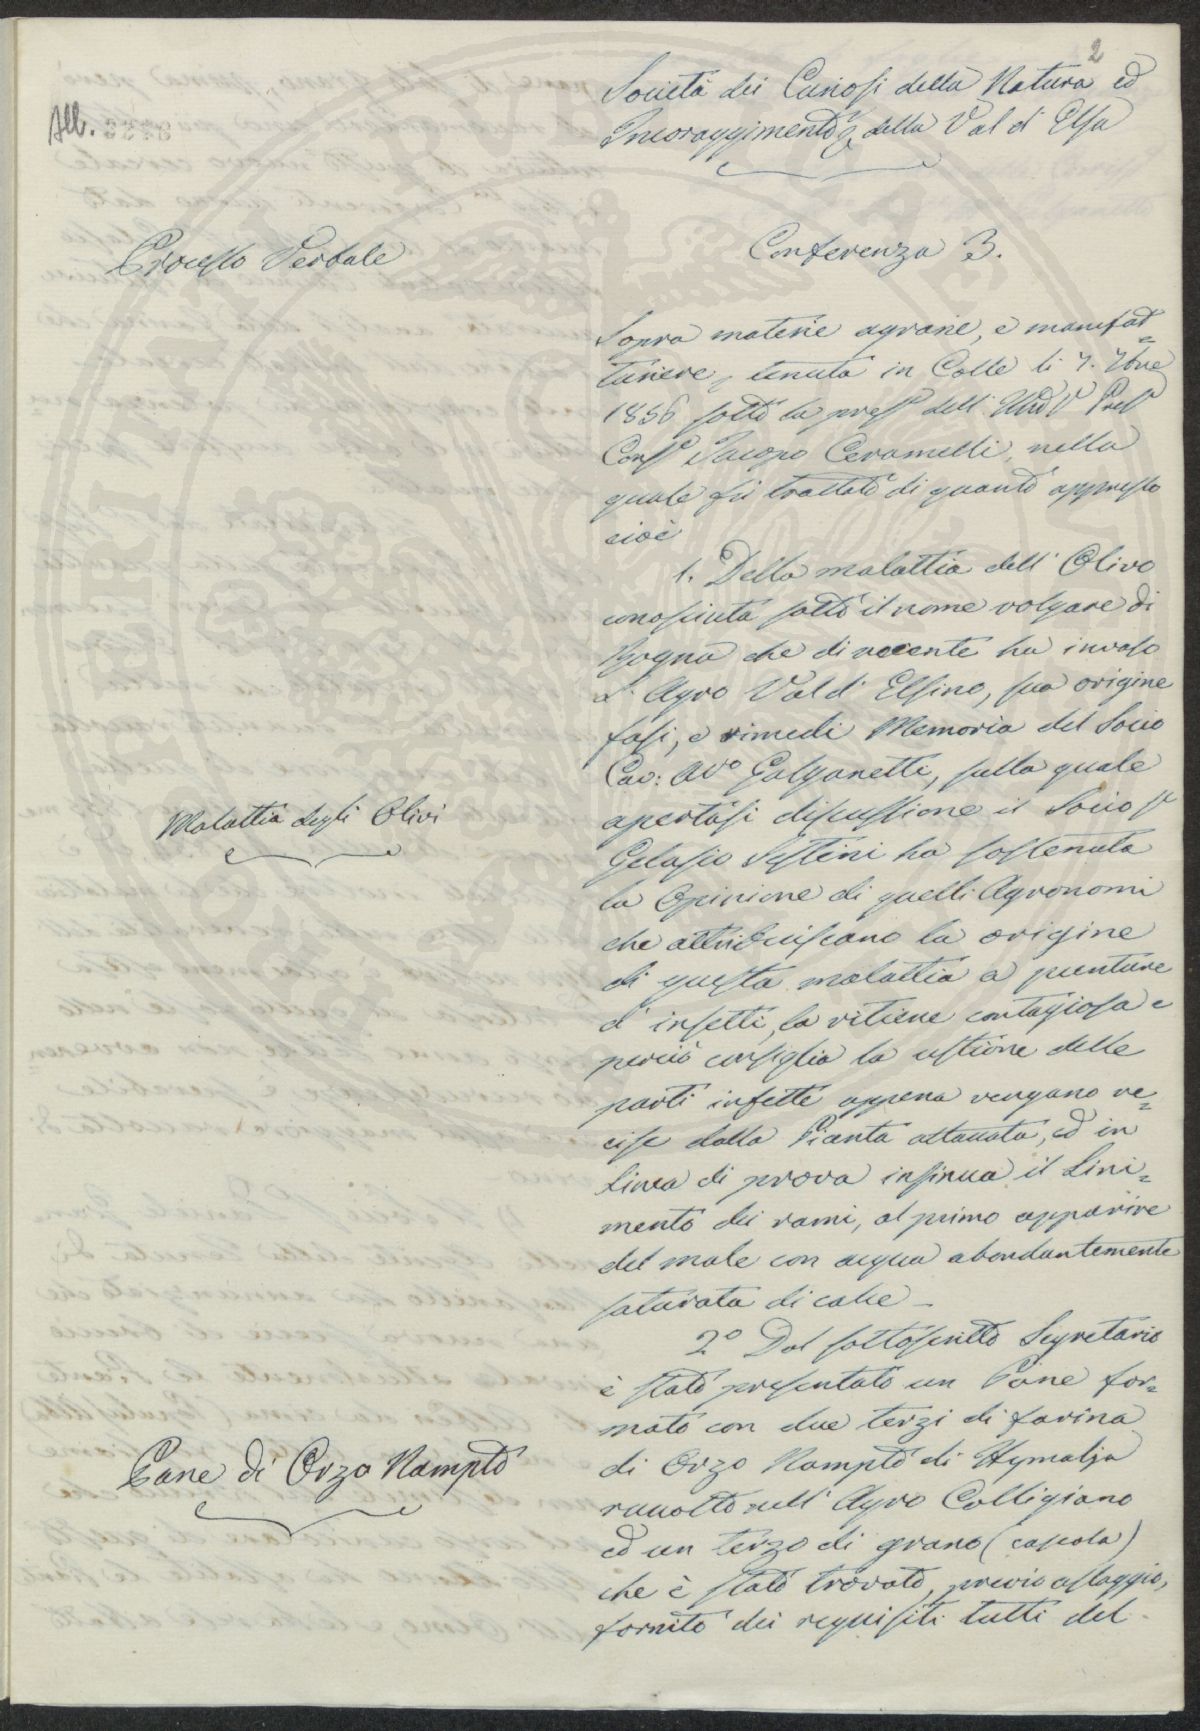 2
All.
Società dei Curiosi della Natura ed
Incoraggimento della Val d' Elsa
Processo Verbale
Conferenza 3.
Sopra materie agrarie, e manifat=
turiere, tenuta in Colle li 7. 7bre
1856 sotto la press dell' Press
Jacopo Ceramelli, nella
quale fù trattato di quanto appresso
cioè
1. Della malattia dell' Olivo
conosciuta sotto il nome volgare di
Rogna che di recente ha invaso
l' Agro Val d' Elsino, sua origine
fasi, e rimedi Memoria del Socio
Cav: Avo Galganetti, sulla quale
apertasi discussione il Socio Sr
Gelasio Sestini ha sostenuta
la Opinione di quelli Agronomi
che attribuiscano la origine
di questa malattia a punture
d' insetti, la ritiene contagiosa e
perciò consiglia la ustione delle
parti infette appena vengano re=
cise dalla Pianta attaccata, ed in
Linea di prova insinua il Lini=
mento dei rami, al primo apparire
del male con acqua abondantemente
saturata di calce
Malattia degli Olivi
2º Dal sottoscritto Segretario
è stato presentato un Pane for=
mato con due terzi di farina
di Orzo Namptò di Hymalja
raccolto nell' Agro Colligiano
ed un terzo di grano (cascola)
che è stato trovato, previo assaggio,
fornito dei requisiti tutti del
Pane di Orzo Namptò